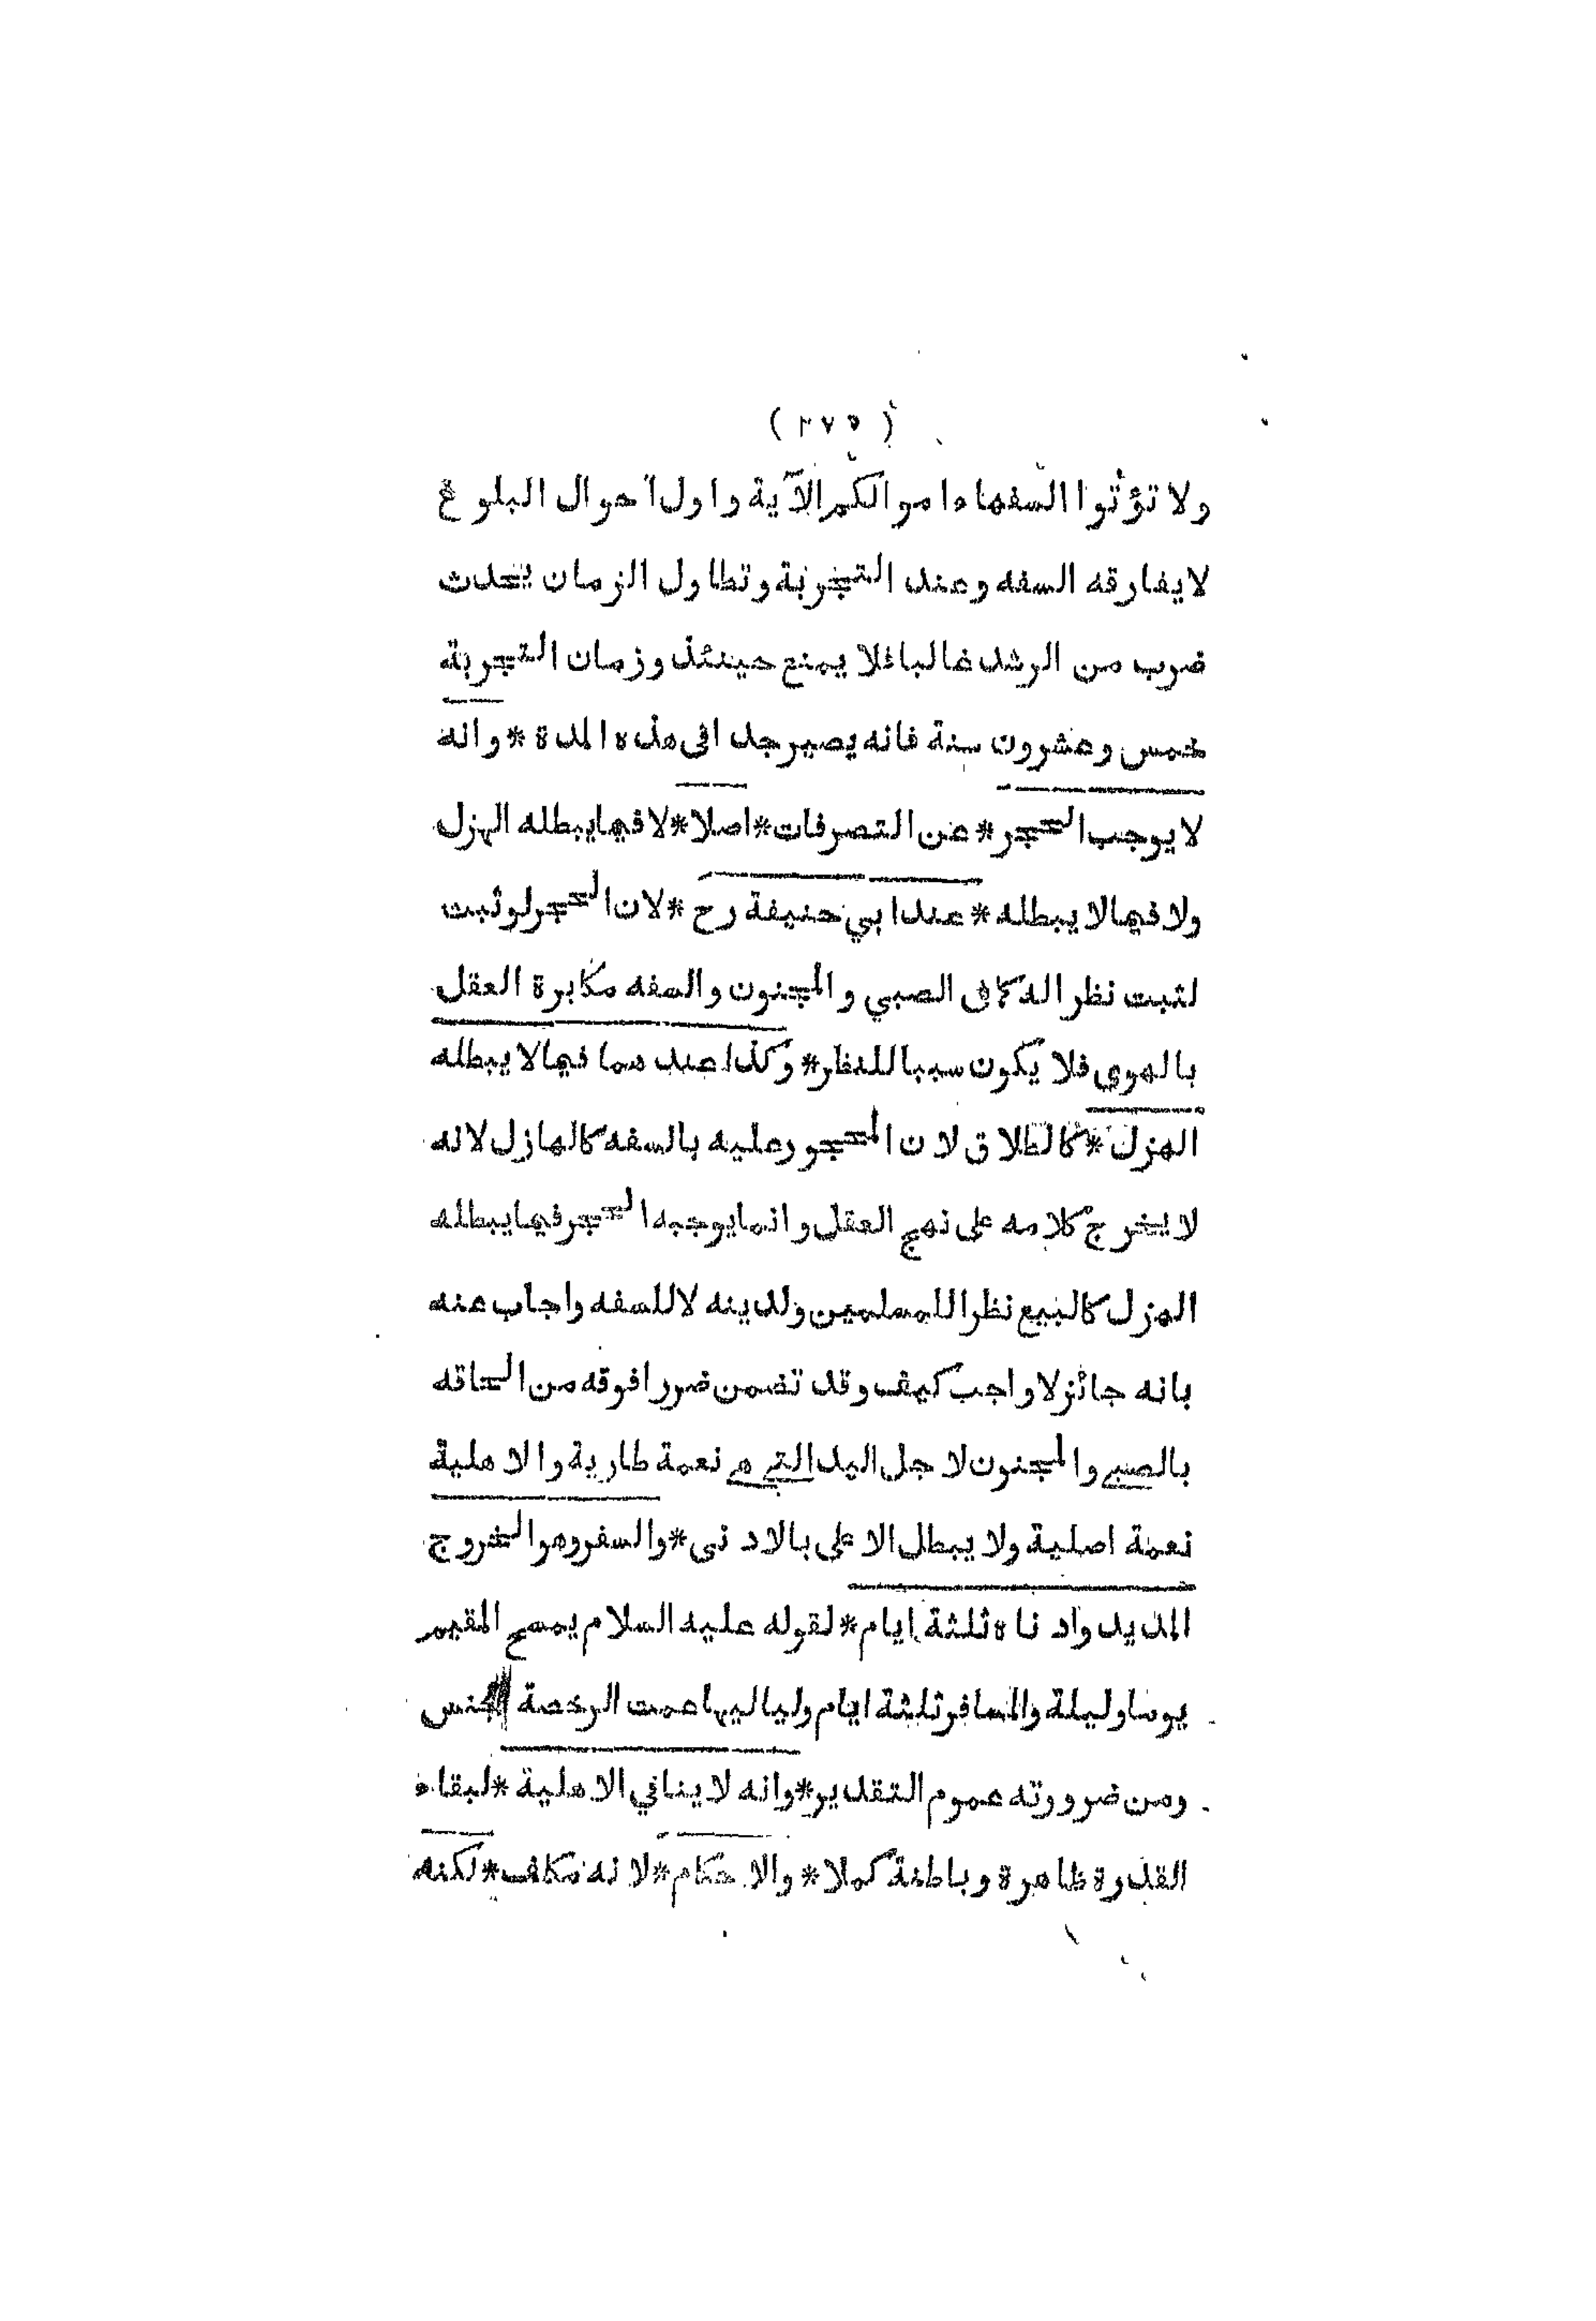 ( ٢٧٥ )
ولا تؤتوا السفهاء اموالكم الآية واول احوال البلوغ
لا يفارقه السفه وعند التجربة وتطاول الزمان يحدث
ضرب من الرشد غالبا فلا يمنع حينئذ وزمان التجربة
خمس وعشرون سنة فانه يصير جدا في هذه المدة * وانه
لا يوجب الحجر * عن التصرفات * اصلا * لا فيما يبطله الهزل
ولا فيما لا يبطله * عند ابي حنيفة رح * لان الحجر لو ثبت
لثبت نظرا له كما في الصبي والمجنون والسفه مكابرة العقل
بالهوي فلا يكون سببا للنظر * وكذا عند هما فيما لا يبطله
الهزل * كالطلاق لان المحجور عليه بالسفه كالهازل لانه
لا يخرج كلامه على نهج العقل وانما يوجبه الحجر فيما يبطله
الهزل كالبيع نظرا للمسلمين ولدينه لا للسفه واجاب عنه
بانه جائز لا واجب كيف وقد تضمن ضررا فوقه من الحاقه
بالصبي والمجنون لاجل اليد التي هي نعمة طارية والاهلية
نعمة اصلية ولا يبطل الاعلى بالادنى * والسفر وهو الخروج
المديد وادناه ثلثة ايام * لقوله عليه السلام يمسح المقيم
يوما وليلة والمسافر ثلثة ايام ولياليها عمت الرخصة الجنس
ومن ضرورته عموم التقدير * وانه لا ينافي الاهلية * لبقاء
القدرة ظاهرة وباطنة كملا * والاحكام * لانه مكلف * لكنه